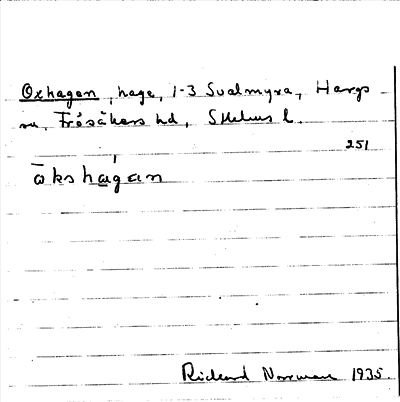 Oxhagen, hage, 1-3 Svalmyra, Hargs
sn, Frösåkers hd, Sthlms l.
251
ōkshagan
Rickard Norrman 1935.